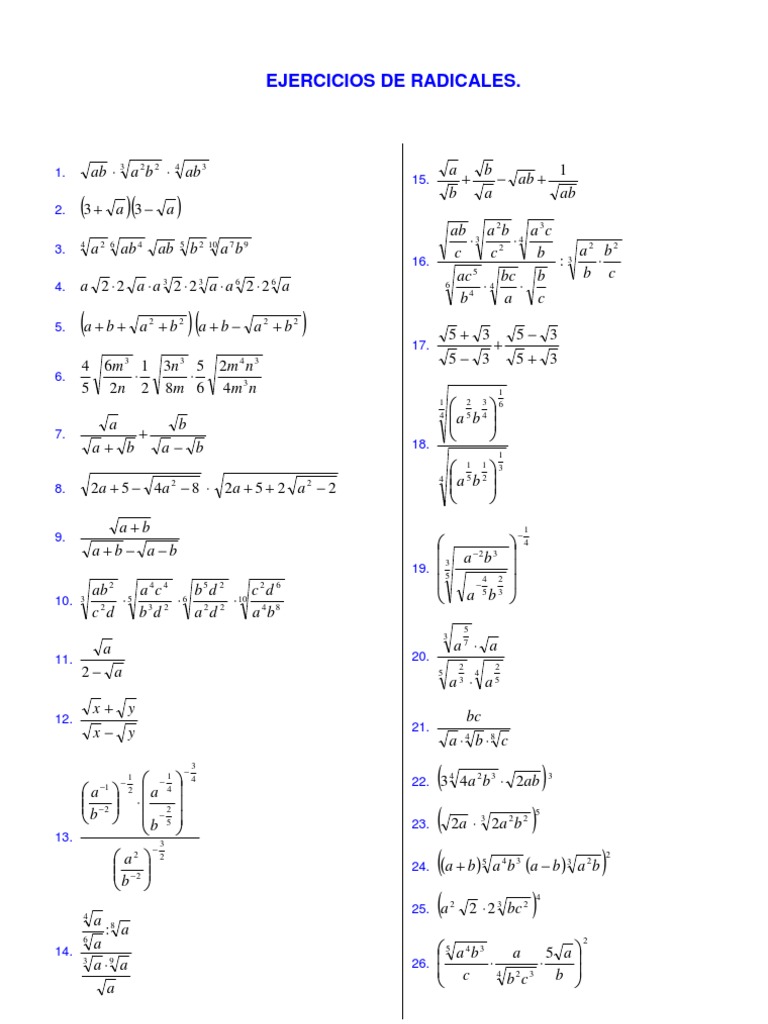 EJERCICIOS DE RADICALES.
1. √(ab) · ∛(a²b²) · ∜(ab³)
2. (3 + √a)(3 − √a)
3. ∜(a²) ⁶√(ab⁴) √(ab) ⁵√(b²) ¹⁰√(a⁷b⁹)
4. a√2 · 2√a · a∛2 · 2∛a · a⁶√2 · 2⁶√a
5. (a + b + √(a² + b²))(a + b − √(a² + b²))
6. 4/5 √(6m³/2n) · 1/2 √(3n³/8m) · 5/6 √(2m⁴n³/4m³n)
7. √a/(√a + √b) + √b/(√a − √b)
8. √(2a + 5 − √(4a² − 8)) · √(2a + 5 + 2√(a² − 2))
9. √(a + b)/(√(a + b) − √(a − b))
10. ∛(ab²/c²d) · ⁵√(a⁴c⁴/b³d²) · ⁶√(b⁵d²/a²d²) · ¹⁰√(c²d⁶/a⁴b⁸)
11. √a/(2 − √a)
12. (√x + √y)/(√x − √y)
13. ((a^(−1)/b^(−2))^(−1/2) · (a^(−1/4)/b^(−2/5))^(−3/4))/(a²/b^(−2))^(−3/2)
14. ((∜a/⁶√a) : ⁸√a)/((∛a · ⁹√a)/√a)
15. √a/√b + √b/√a − √(ab) + 1/√(ab)
16. (√(ab/c) · ∛(a²b/c²) · ∜(a³c/b))/(⁶√(ac⁵/b⁴) · ∜(bc/a) · √(b/c)) : ∛(a²/b · b²/c)
17. (√5 + √3)/(√5 − √3) + (√5 − √3)/(√5 + √3)
18. ^(1/4)√((a^(2/5)b^(3/4))^(1/6))/∜((a^(1/5)b^(1/2))^(1/3))
19. (^(3/5)√(a^(−2)b³/√(a^(−4/5)b^(2/3))))^(−1/4)
20. (∛(a^(5/7)) · √a)/(⁵√(a^(2/3)) · ∜(a^(2/5)))
21. bc/(√a · ∜b · ⁸√c)
22. (3∜(4a²b³) · √(2ab))³
23. (√(2a) · ∛(2a²b²))⁵
24. ((a + b)⁵√(a⁴b³)(a − b)∛(a²b))²
25. (a²√2 · 2∛(bc²))⁴
26. (⁵√(a⁴b³)/c · a/∜(b²c³) · 5√a/b)²